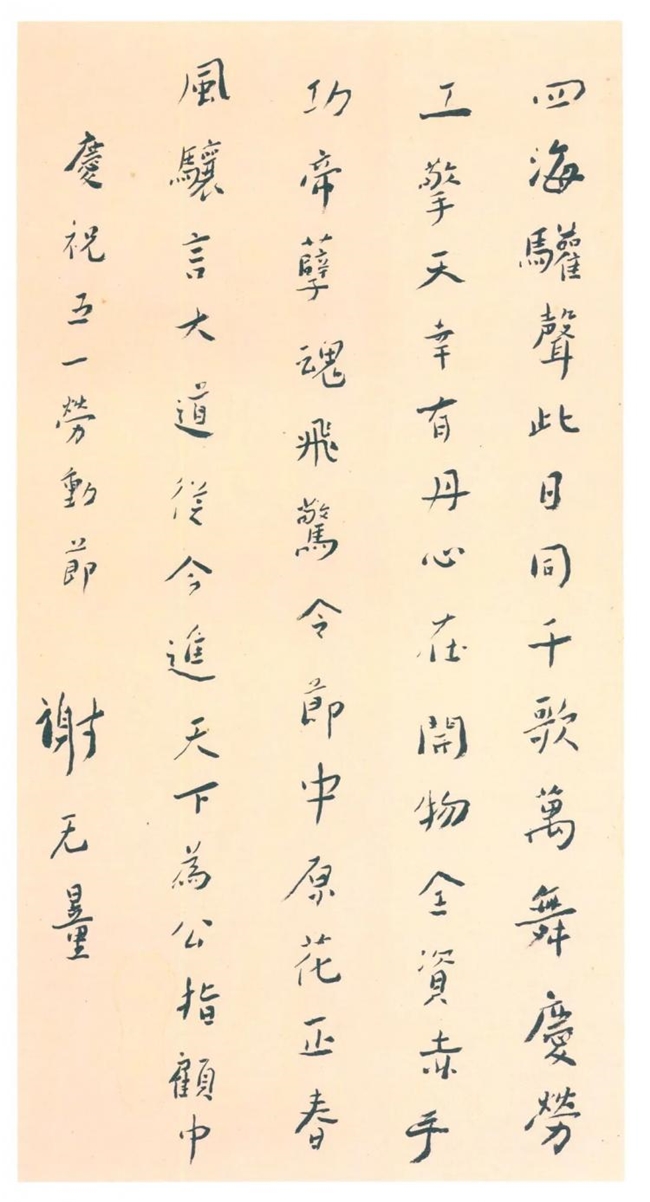 四海驩聲此日同千歌萬舞慶勞
工擎天幸有丹心在開物全資赤手
功帝孽魂飛驚令節中原花正春
風驤言大道從今進天下為公指顧中
慶祝五一勞動節 謝无量